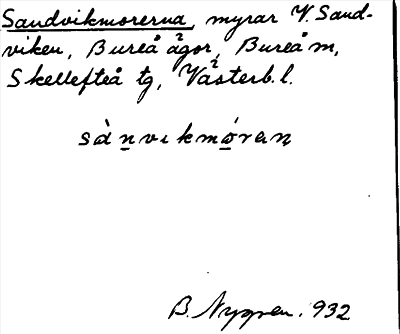 Sandvikmorerna, myrar V. Sand-
viken, Bureå ägor, Bureå m,
Skellefteå tg, Västerb. l.
sànvikmóraṇ
B. Nygren. 932